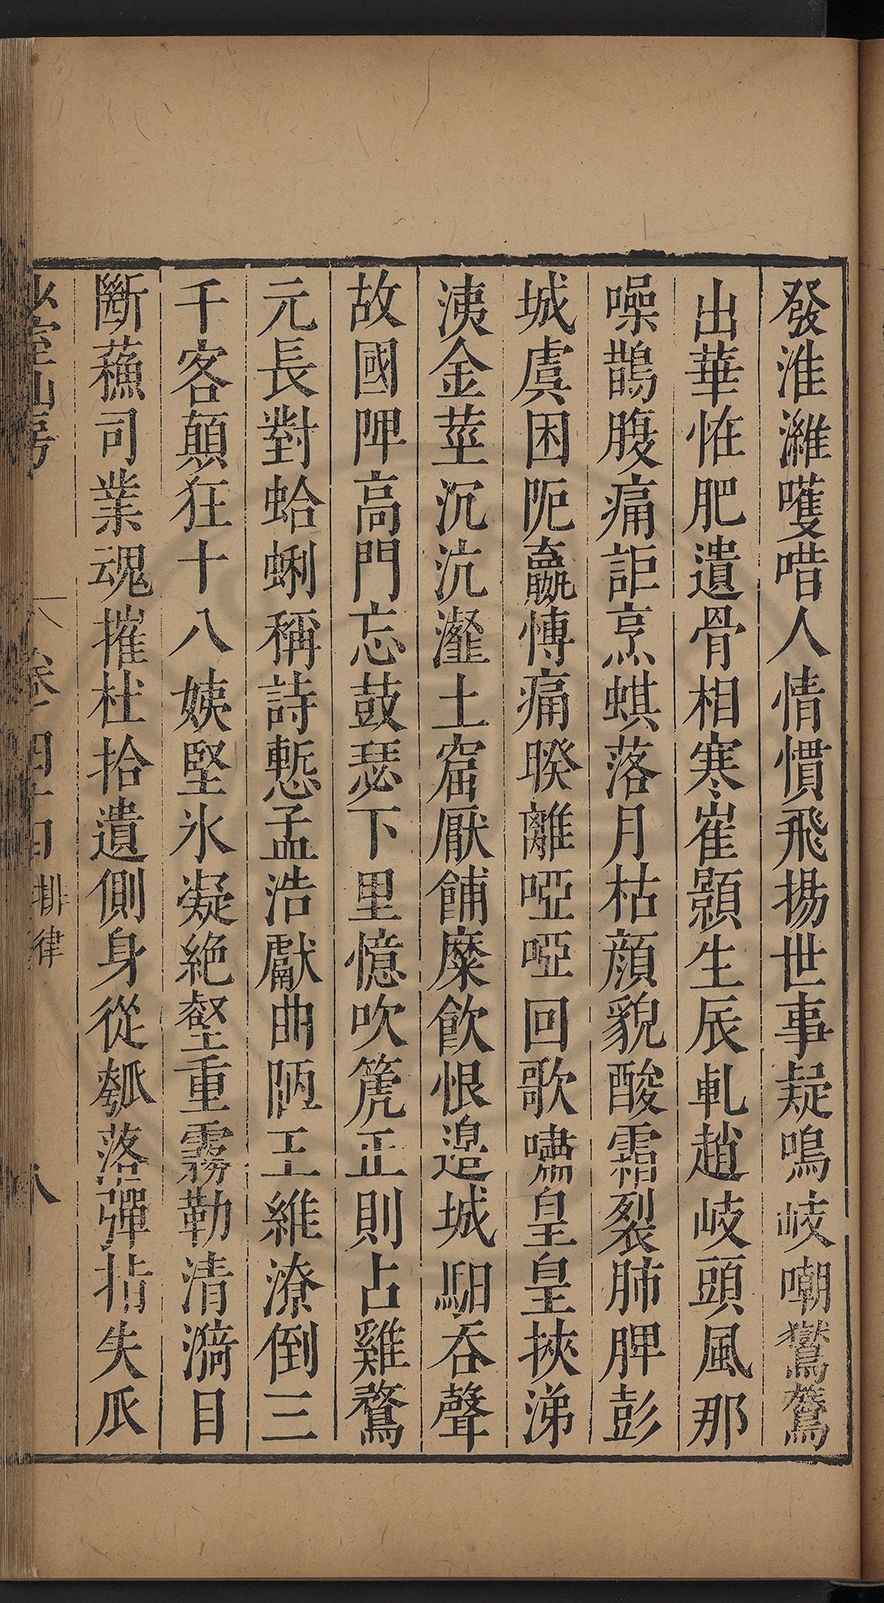 發淮濰嚄唶人情慣飛揚世事疑鳴岐嘲鸑鷟
出華恠肥遺骨相寒崔顥生辰軋趙岐頭風那
噪鵲腹痛詎烹蜞落月枯顔貌酸霜裂肺脾彭
城虞困阨嬴愽痛暌離啞啞回歌嘯皇皇挾涕
洟金莖沉沆瀣土窟厭餔糜飮恨邉城馹吞聲
故國陴高門忘鼓瑟下里憶吹箎正則占雞鶩
元長對蛤蜊稱詩慙孟浩獻曲陋王維潦倒三
千客顛狂十八姨堅氷凝絶壑重霧勒清漪目
斷蘓司業魂摧杜拾遺側身從瓠落彈指失瓜
少室山房
卷一四十四 排律
八